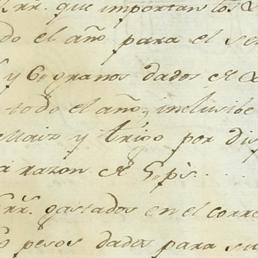 rr. que importan los
do el año para el se
y 6 granos dados al
todo el año, inclusibe
Maiz y trigo por dis
a razon de 5 ps.
rr. gastados en el corre
pesos dados para su